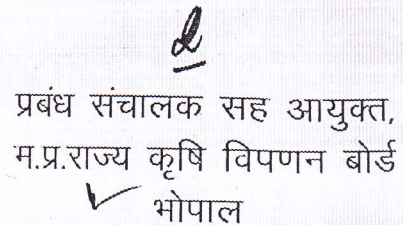 प्रबंध संचालक सह आयुक्त,
म.प्र.राज्य कृषि विपणन बोर्ड
भोपाल